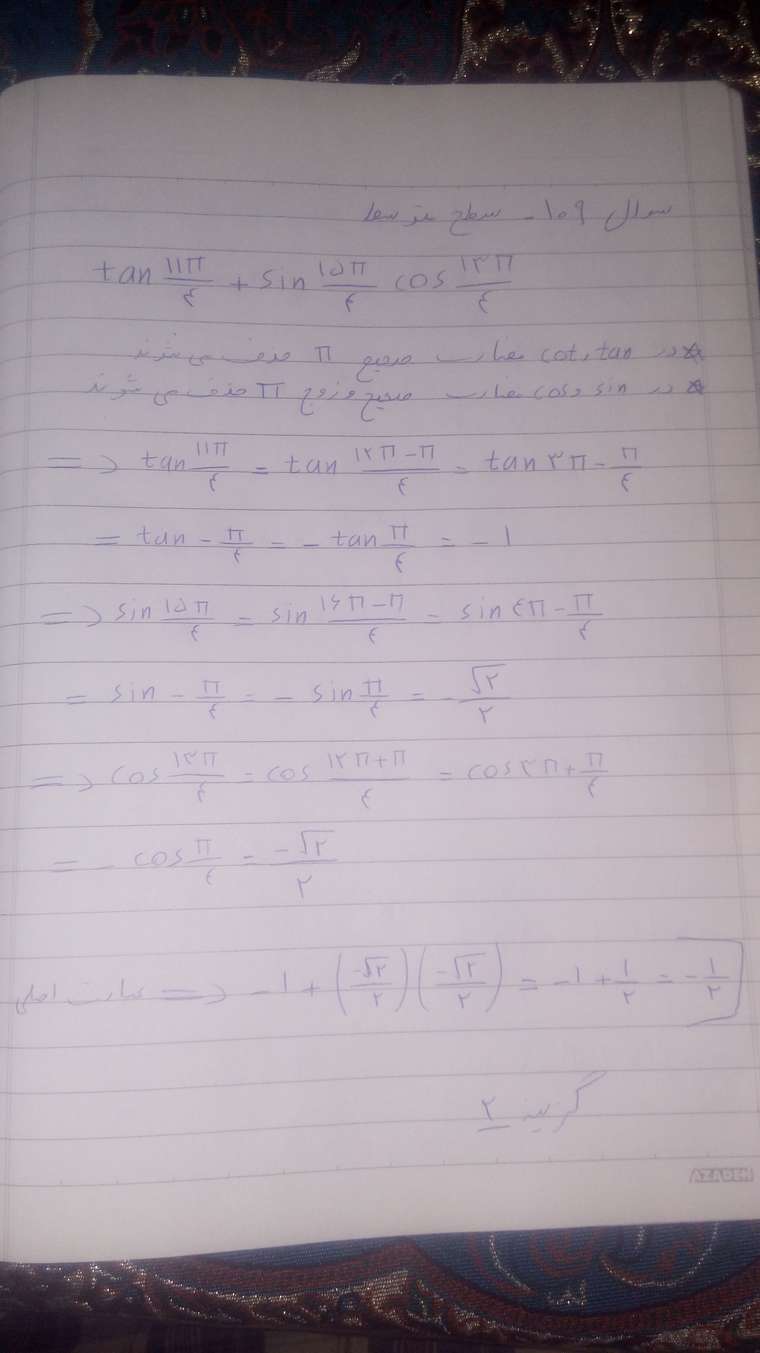 سوال ۱۰۹ - سطح متوسط
tan ۱۱π/۴ + sin ۱۵π/۴ cos ۱۳π/۴
* در tan و cot مضارب صحیح π حذف می شوند
* در sin و cos مضارب صحیح و زوج π حذف می شوند
=> tan ۱۱π/۴ = tan (۱۲π-π)/۴ = tan ۳π - π/۴
= tan - π/۴ = - tan π/۴ = - ۱
=> sin ۱۵π/۴ = sin (۱۶π-π)/۴ = sin ۴π - π/۴
= sin - π/۴ = - sin π/۴ = - √۲/۲
=> cos ۱۳π/۴ = cos (۱۲π+π)/۴ = cos ۳π + π/۴
= - cos π/۴ = -√۲/۲
عبارت اصلی => -۱ + (-√۲/۲)(-√۲/۲) = -۱ + ۱/۲ = -۱/۲
گزینه ۲
AZADEH